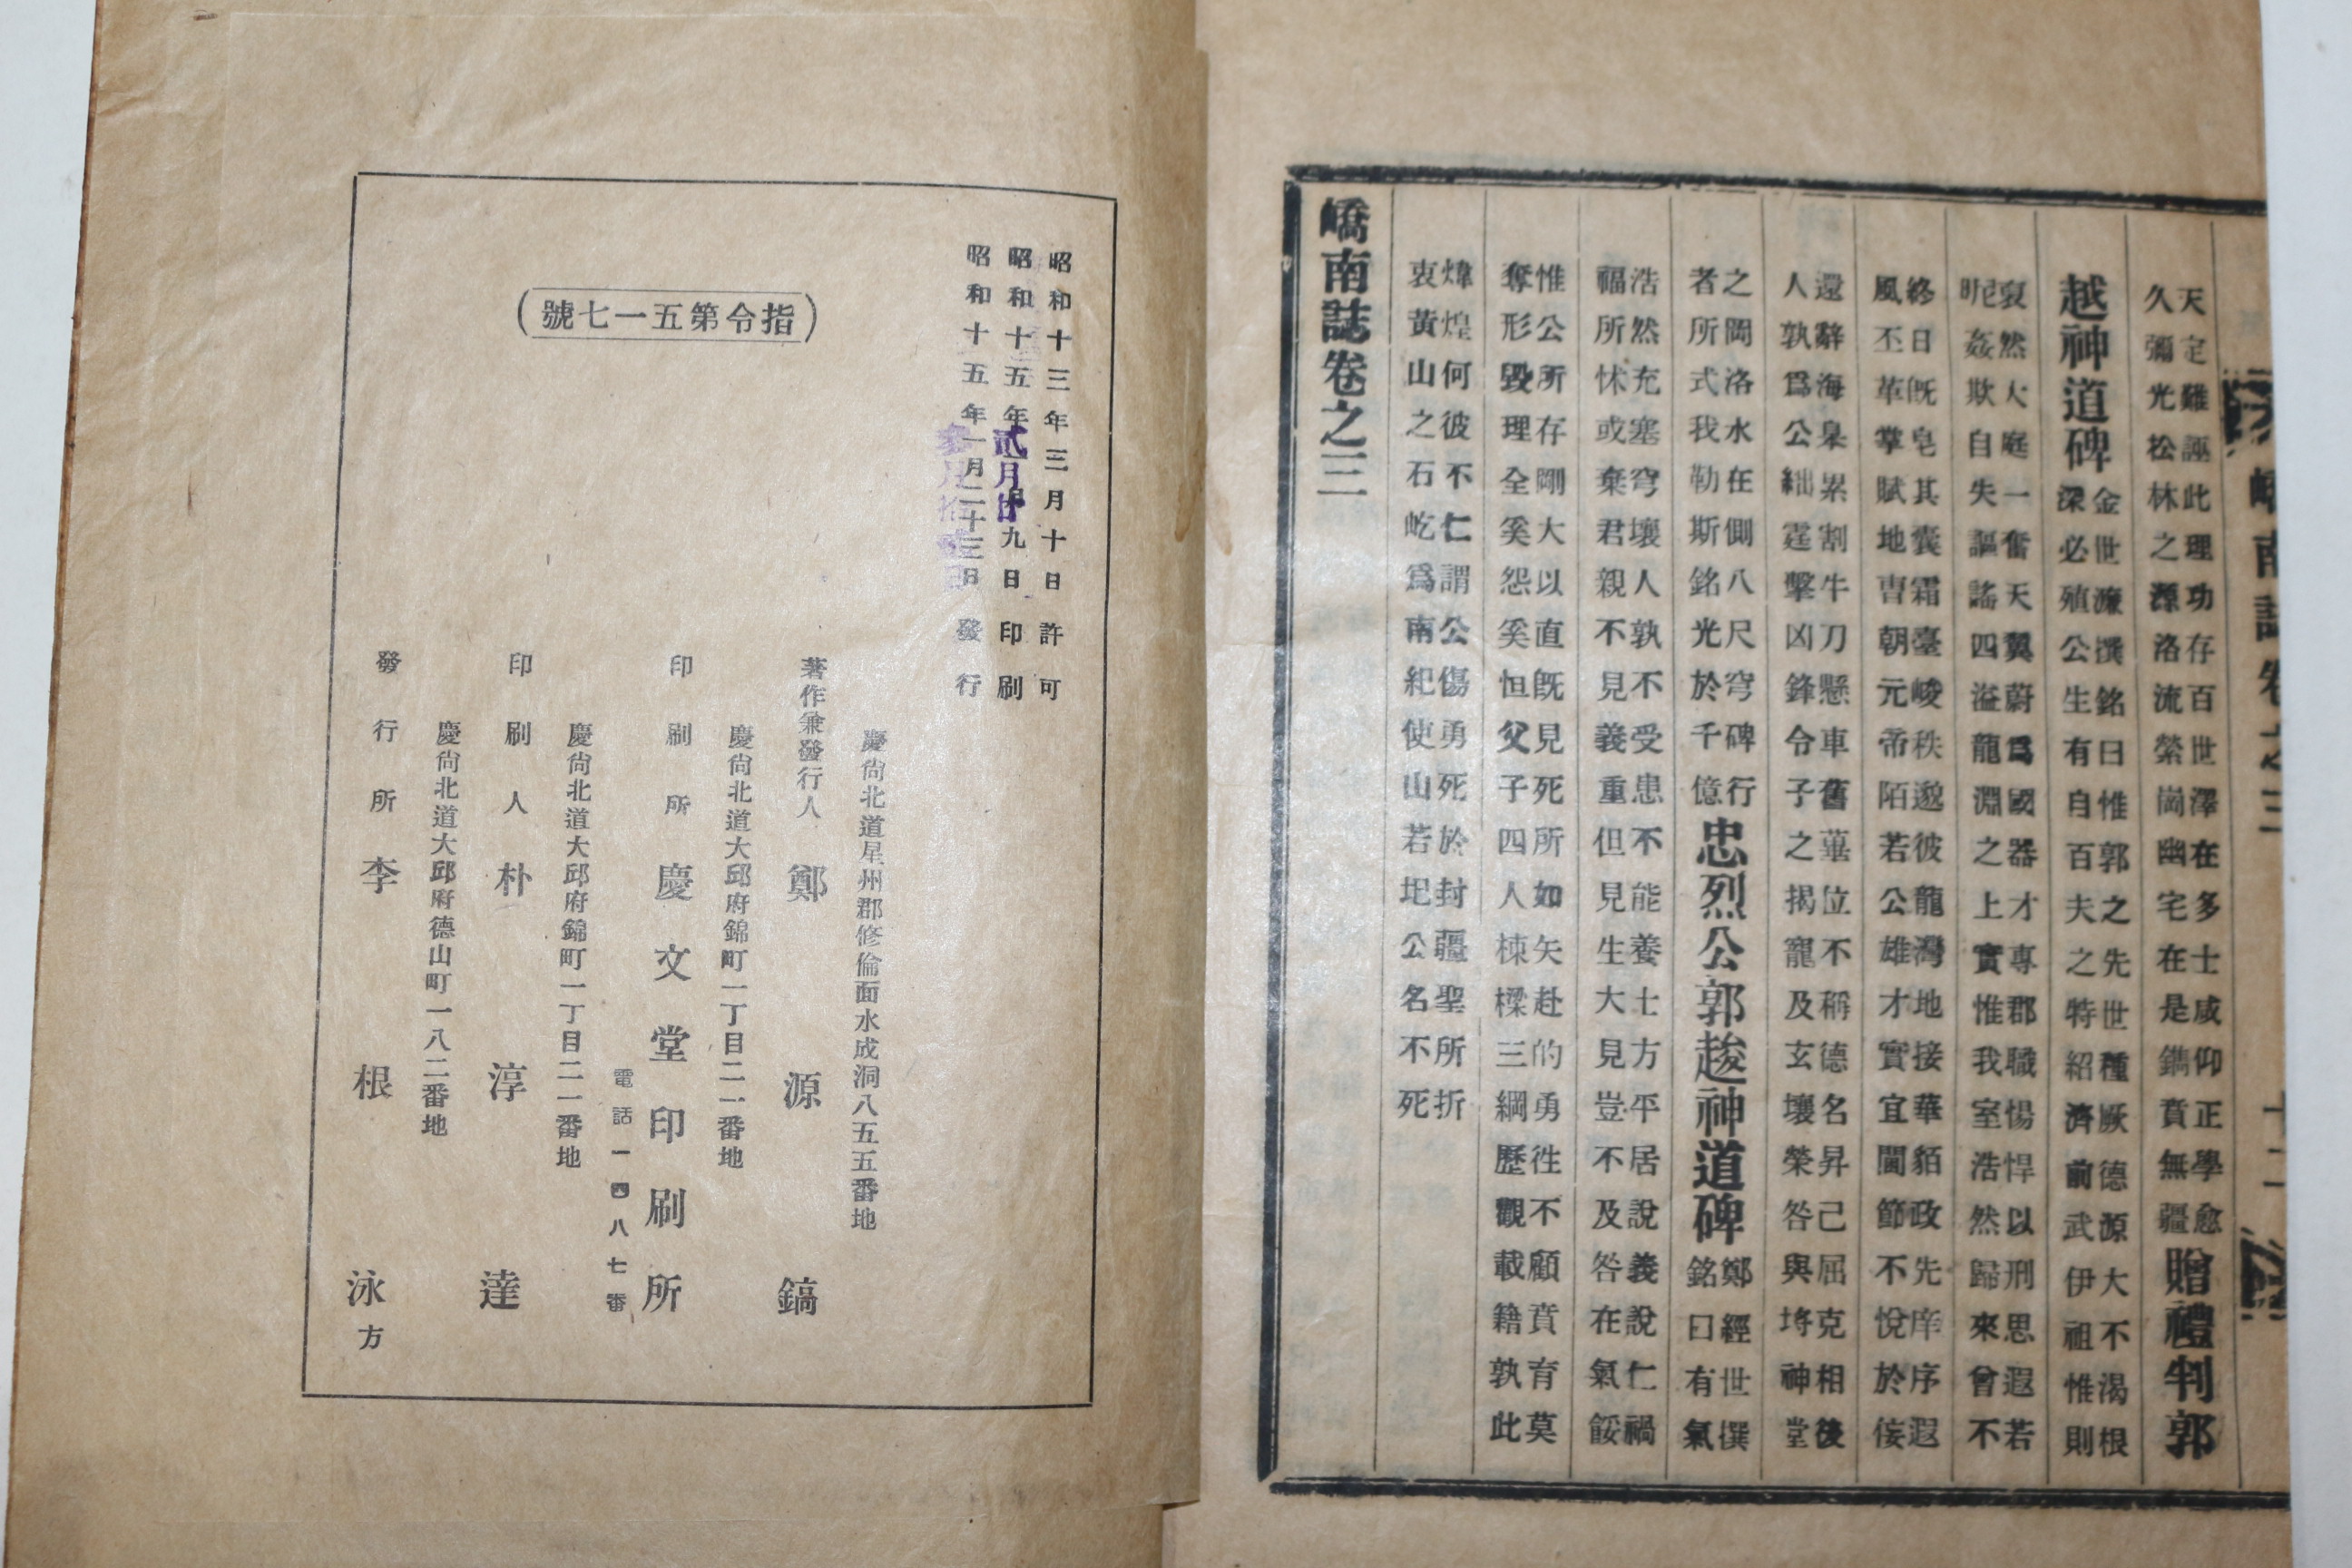 天定難誣此理功存百世澤在多士咸仰正學愈
久彌光松林之源洛流縈崗幽宅在是鐫賁無疆
贈禮判郭
越神道碑
金世濂撰銘曰惟郭之先世種厥德源大不渴根
深必殖公生有自百夫之特紹濟前武伊祖惟則
裒然大庭一奮天翼蔚爲國器才專郡職惕悍以刑思遐若
昵姦欺自失謳謠四溢龍淵之上實惟我室浩然歸來曾不
終日旣皂其囊霜臺峻秩邈彼龍灣地接華貊政先庠序遐
風丕革掌賦地曹朝元帝陌若公雄才實宜閫節不悅於倿
還辭海臬累割牛刀懸車舊蓽位不稱德名昇己屈克相後
人孰爲公絀霆擊凶鋒令子之揭寵及玄壤榮咎與埓神堂
之岡洛水在側八尺穹碑行
者所式我勒斯銘光於千億
忠烈公郭䞭神道碑
鄭經世撰
銘曰有氣
浩然充塞穹壤人孰不受患不能養士方平居說義說仁禍
福所怵或棄君親不見義重但見生大見豈不及咎在氣餒
惟公所存剛大以直旣見死所如矢赴的勇徃不顧賁育莫
奪形毀理全奚怨奚恒父子四人棟樑三綱歷觀載籍孰此
煒煌何彼不仁謂公傷勇死於封疆聖所折
衷黃山之石屹爲南紀使山若圯公名不死
嶠南誌卷之三
嶠南誌卷之三
十二
(指令第五一七號)
昭和十三年三月十日許可
昭和十五年 月十九日印刷
貳月廿
昭和十五年一月二十三日發行
慶尙北道星州郡修倫面水成洞八五五番地
著作兼發行人 鄭源鎬
慶尙北道大邱府錦町一丁目二一番地
印刷所 慶文堂印刷所
電話一四八七番
慶尙北道大邱府錦町一丁目二一番地
印刷人 朴淳達
慶尙北道大邱府德山町一八二番地
發行所 李根泳方